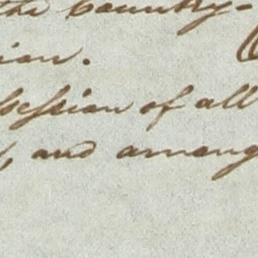 the country-
ion.
session of all
, and among